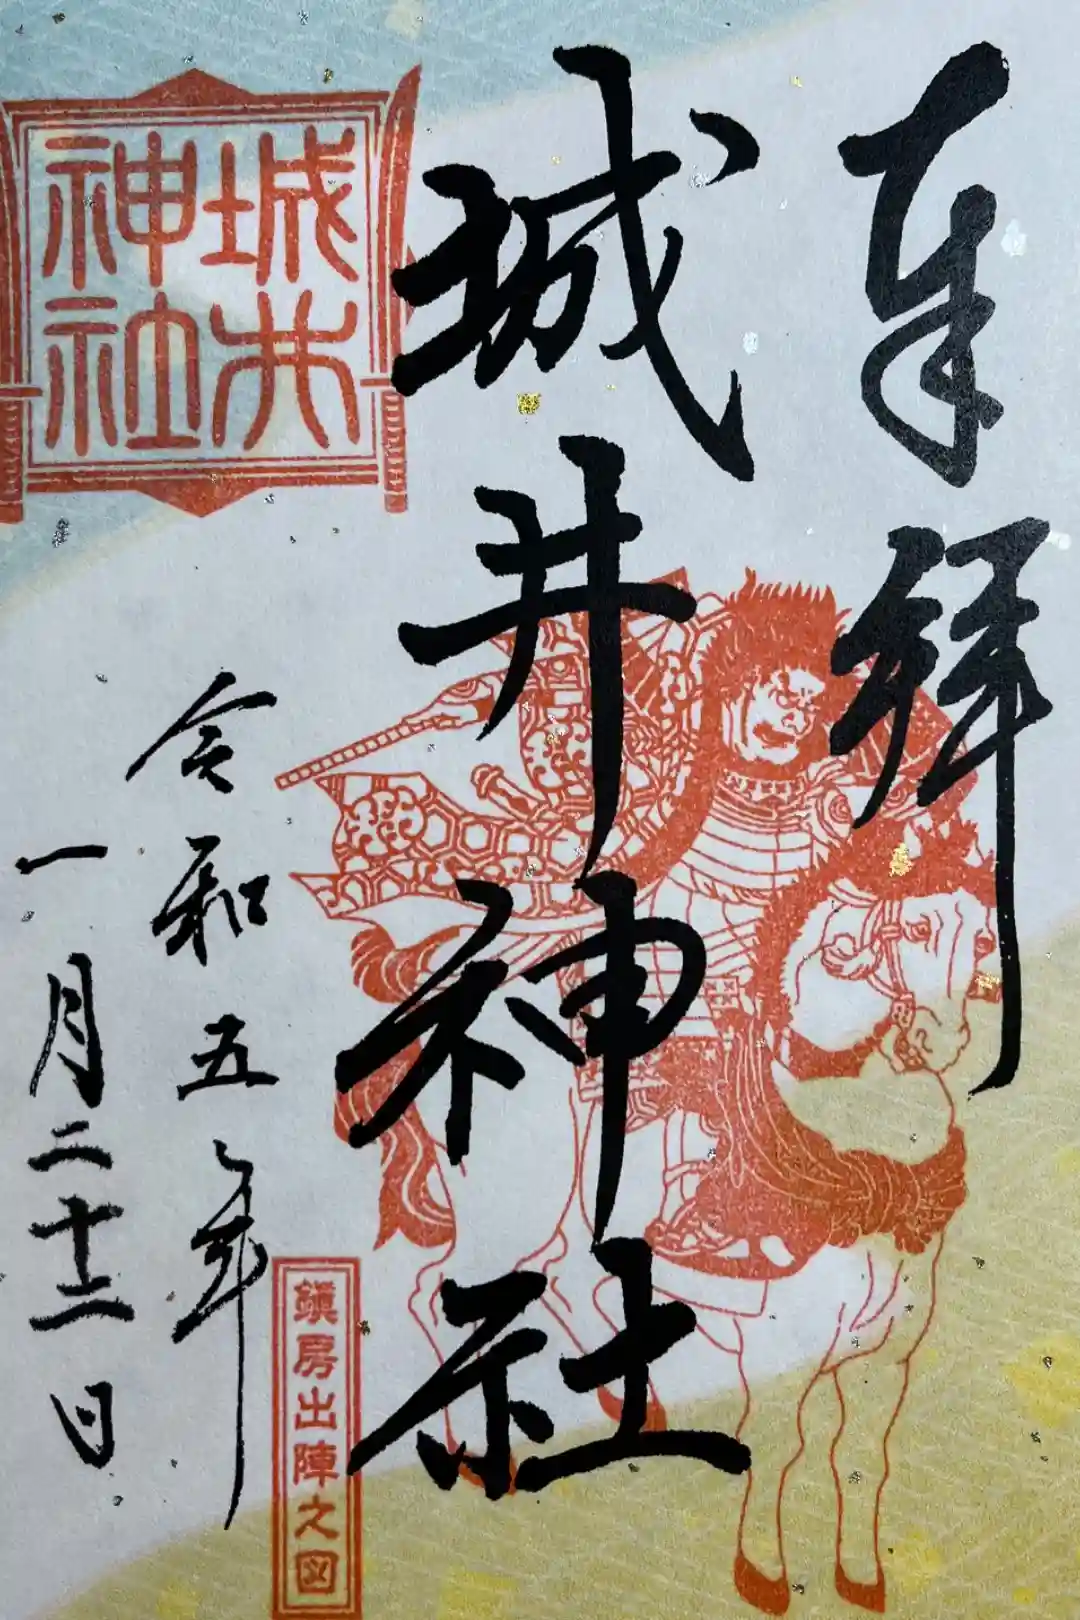 奉拝
城井神社
城井
神社
令和五年
一月二十二日
鎮房出陣之図